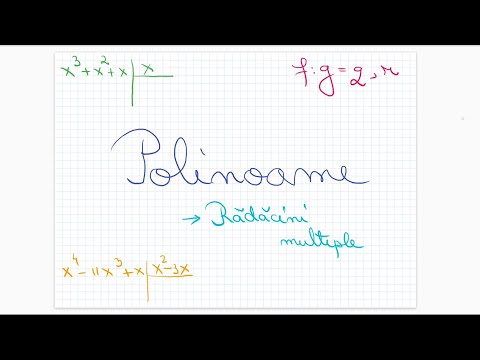 x³+x²+x | x
f:g=q,r
Polinoame
→ Rădăcini
multiple
x⁴-11x³+x | x²-3x